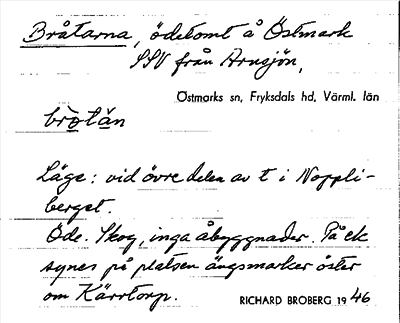 Bråtarna, ödetomt å Östmark
SSV från Arnsjön,
Östmarks sn, Fryksdals hd, Värml. län
bròtän
Läge: vid övre delen av t i Noppli-
berget.
Öde. Skog, inga åbyggnader. På ek
synes på platsen ängsmarker öster
om Kärrtorp.
RICHARD BROBERG 1946